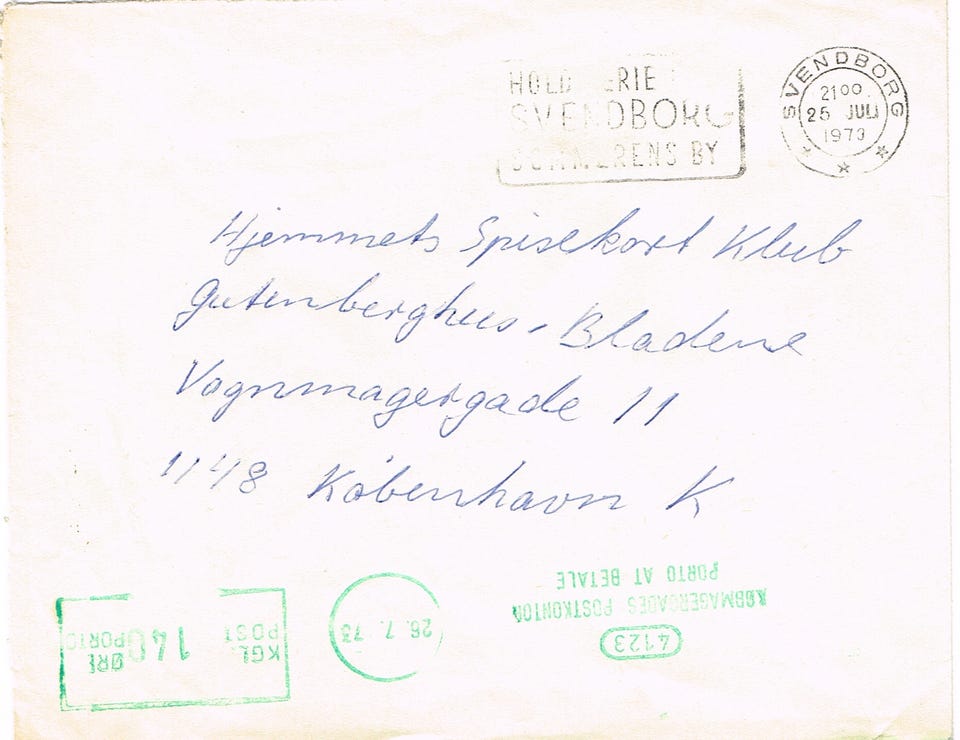 HOLD FERIE I
SVENDBORG
SOMMERENS BY
SVENDBORG
2100
25 JULI
1973
Hjemmets Spisekort Klub
Gutenberghus-Bladene
Vognmagergade 11
1148 København K
KØBMAGERGADES POSTKONTOR
PORTO AT BETALE
4123
26.7.73
KGL.
POST
140
ØRE
PORTO